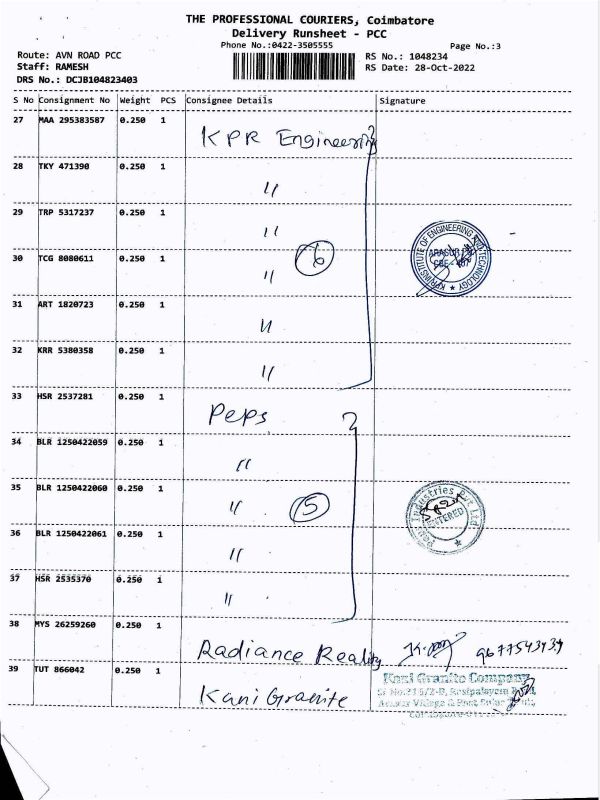 THE PROFESSIONAL COURIERS, Coimbatore
Delivery Runsheet - PCC
Phone No.:0422-3505555
Page No.:3
Route: AVN ROAD PCC
RS No.: 1048234
Staff: RAMESH
RS Date: 28-Oct-2022
DRS No.: DCJB104823403
S No Consignment No Weight PCS Consignee Details Signature
27 MAA 295383587 0.250 1 KPR Engineering
28 TKY 471390 0.250 1 "
29 TRP 5317237 0.250 1 "
6
30 TCG 8080611 0.250 1 "
KPR INSTITUTE OF ENGINEERING AND TECHNOLOGY
31 ART 1820723 0.250 1 "
32 KRR 5380358 0.250 1 "
33 HSR 2537281 0.250 1 Peps
34 BLR 1250422059 0.250 1 "
35 BLR 1250422060 0.250 1 "
5
Industries Pvt Ltd
36 BLR 1250422061 0.250 1 "
37 HSR 2535370 0.250 1 "
38 MYS 26259260 0.250 1 Radiance Reality
39 TUT 866042 0.250 1 Kani Granite
Kani Granite Company